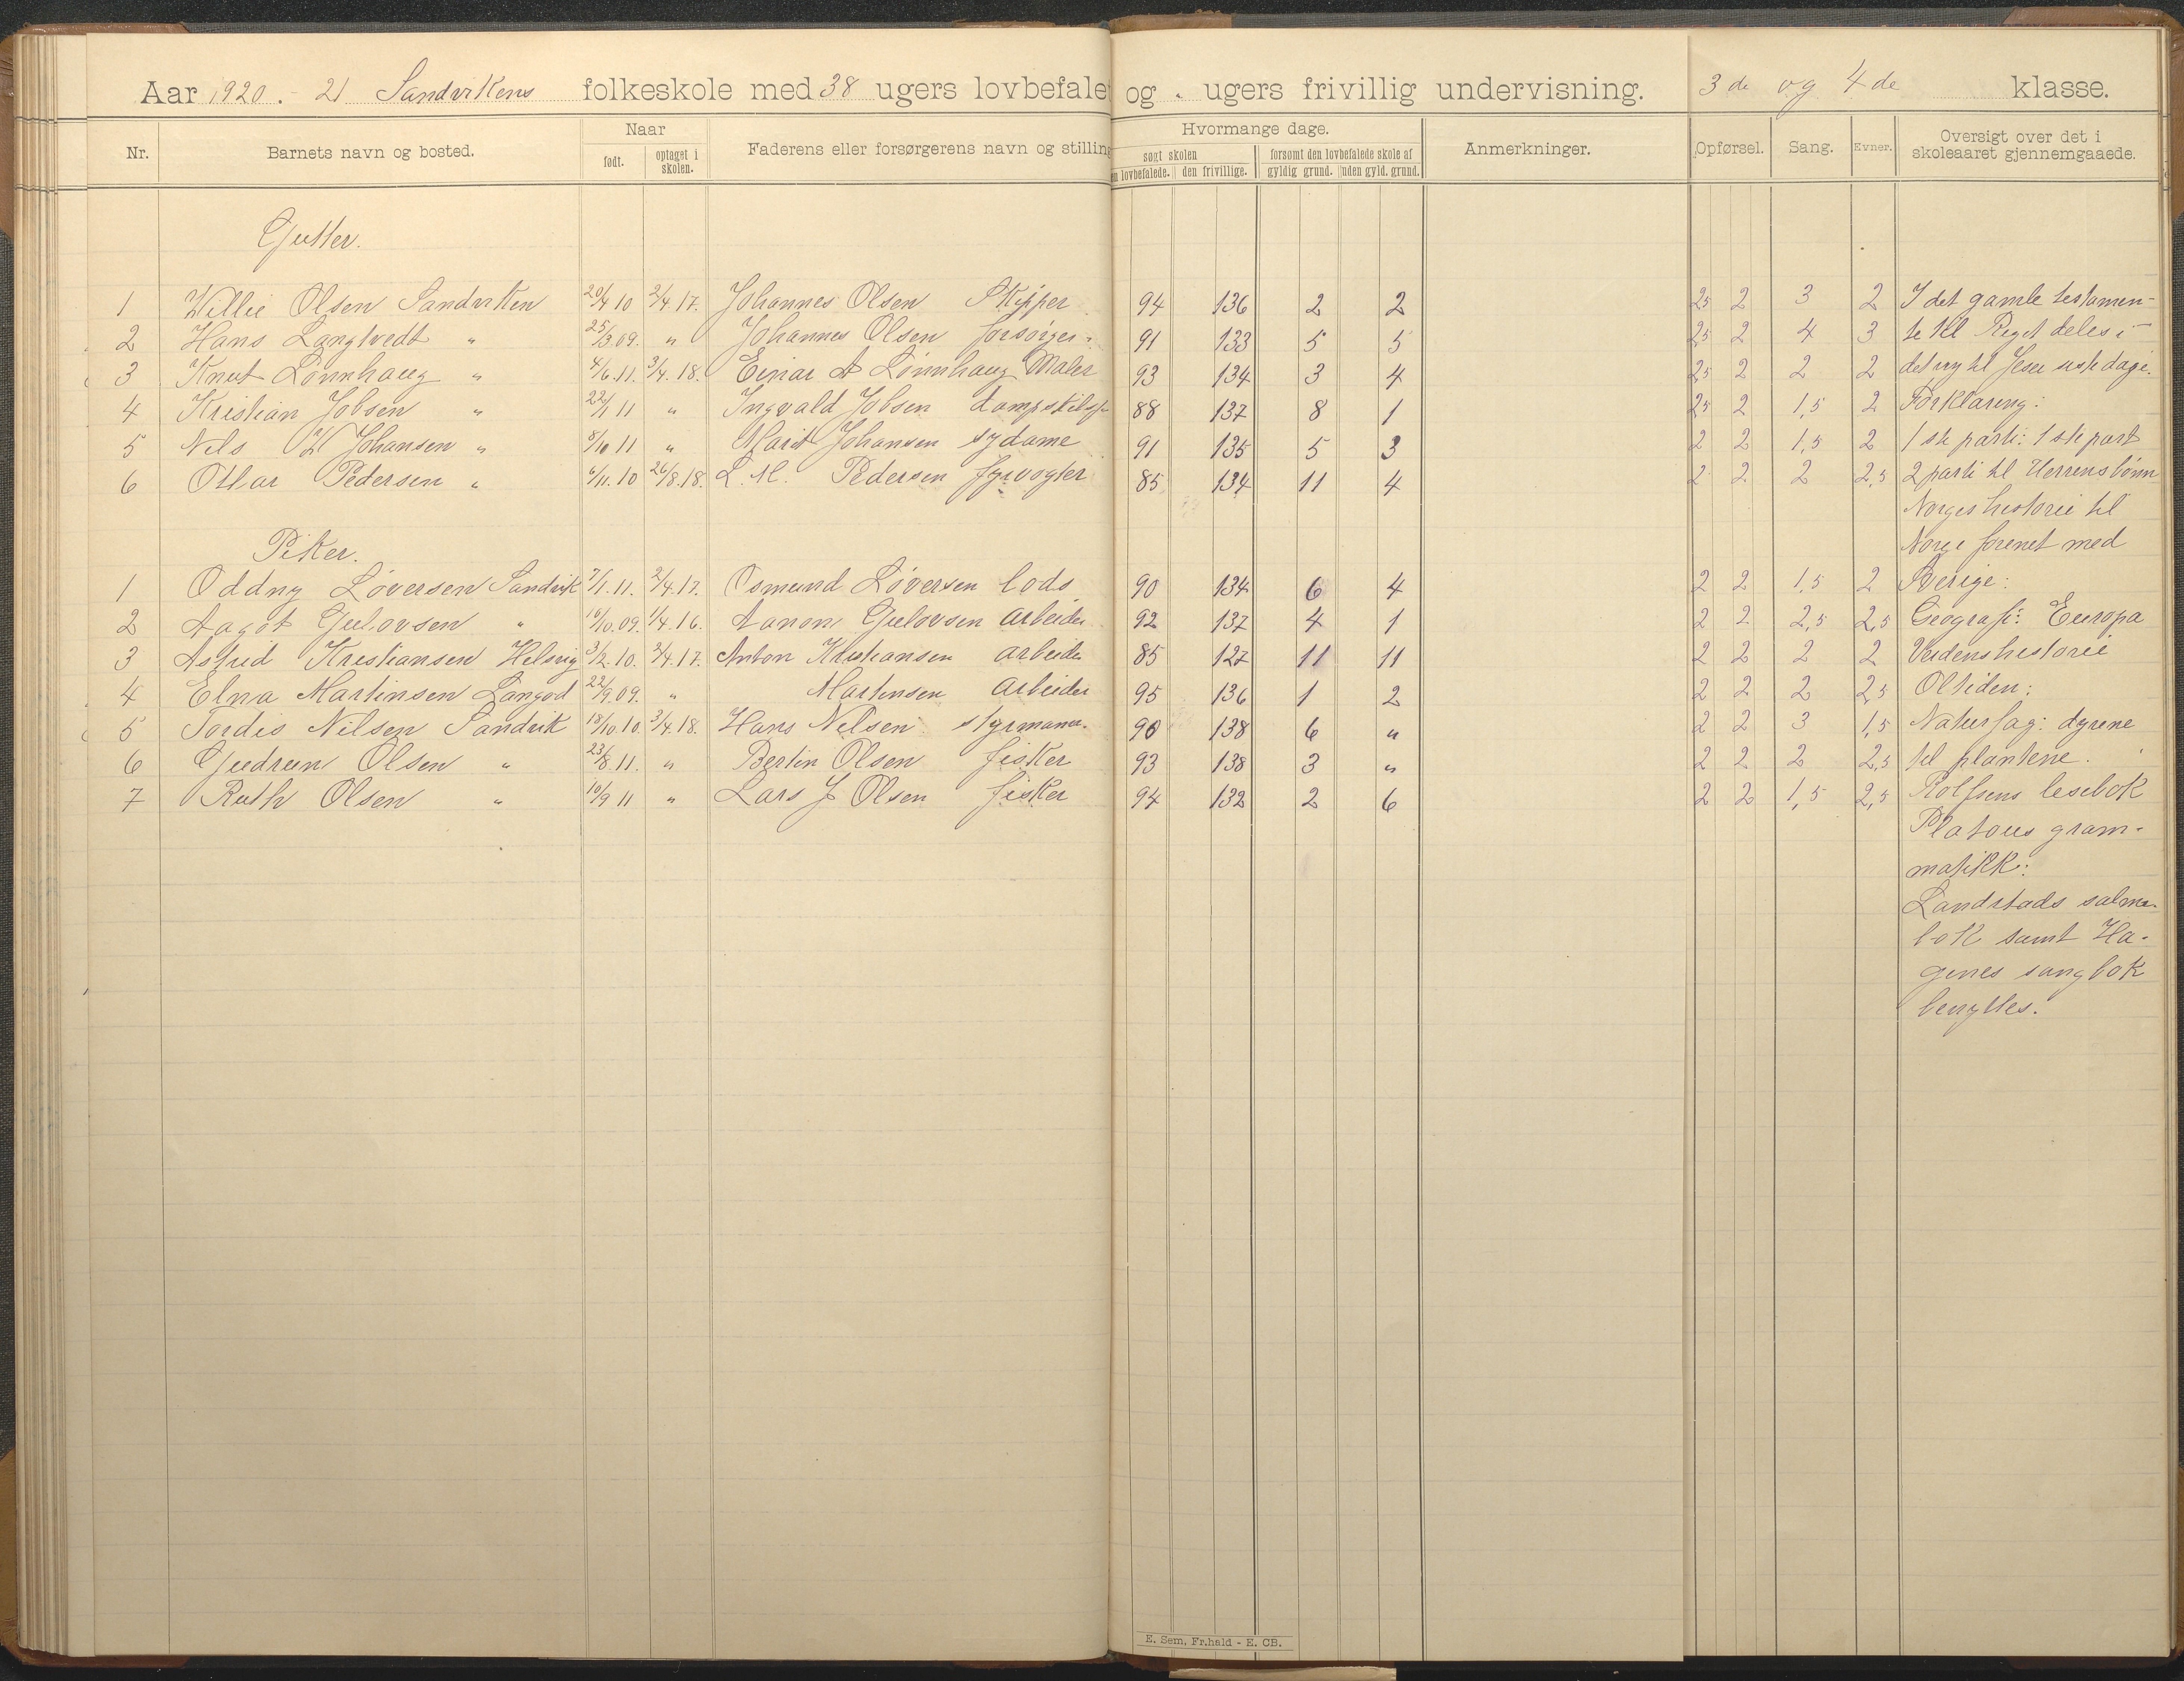 Aar 1920. - 21 Sandvikens folkeskole med 38 ugers lovbefale og - ugers frivillig undervisning. 3 de og 4 de klasse.
Nr. Barnets navn og bosted. Naar født. optaget i skolen. Faderens eller forsørgerens navn og stilling Hvormange dage. søgt skolen en lovbefalede. den frivillige. forsømt den lovbefalede skole af gyldig grund. uden gyld. grund. Anmerkninger. Opførsel. Sang. Evner. Oversigt over det i skoleaaret gjennemgaaede.
Gutter.
1 Willie Olsen Sandviken 20/4 10 2/4 17. Johannes Olsen Skipper 94 136 2 2 25 2 3 2 I det gamle testamen-
2 Hans Langtvedt " 25/3.09. " Johannes Olsen forsørger 91 133 5 5 25 2 4 3 te til Riget deles i
3 Knut Lønnhaug " 4/6.11. 3/4.18. Einar A Lønnhaug Maler 93 134 3 4 25 2 2 2 det ny til Jesu siste dage.
4 Kristian Jobsen " 22/1 11 " Ingvald Jobsen 88 137 8 1 25 2 1,5 2 Forklaring:
5 Nils K Johansen " 8/10 11 " Marit Johansen sydame 91 135 5 3 2 2 1,5 2 1 ste parti: 1 ste part
6 Ottar Pedersen " 6/11.10 26/8.18. L. M. Pedersen fyrvogter 85 134 11 4 2 2 2 2,5 2 parti til Herrens bønn
Norges historie til
Piker. Norge forenet med
1 Oddny Løversen Sandvik 7/1.11. 2/4.17. Osmund Løversen lods 90 134 6 4 2 2 1,5 2 Sverige:
2 Aagot Gulovsen " 16/10.09. 1/4.16. Aanon Gulovsen arbeider 92 137 4 1 2 2 2,5 2,5 Geografi: Europa
3 Astrid Kristiansen Helsvig 3/2.10. 2/4.17. Anton Kristiansen arbeide 85 127 11 11 2 2 2 2 Verdenshistorie
4 Elna Martinsen Langød 22/9.09. " Martinsen Arbeider 95 136 1 2 2 2 2 2,5 Oltiden:
5 Tordis Nilsen Sandvik 18/10.10. 3/4.18. Hans Nilsen styrmann. 90 138 6 " 2 2 3 1,5 Naturfag: dyrene
6 Gudrun Olsen " 23/8.11. " Bertin Olsen fisker 93 138 3 " 2 2 2 2,5 til plantene.
7 Ruth Olsen " 10/9 11 " Lars J Olsen fisker 94 132 2 6 2 2 1,5 2,5 Rolfsens lesebok
Platous gram-
matikk:
Landstads salme-
bok samt Ha-
genes sangbok
benyttes.
E. Sem, Fr.hald - E. CB.